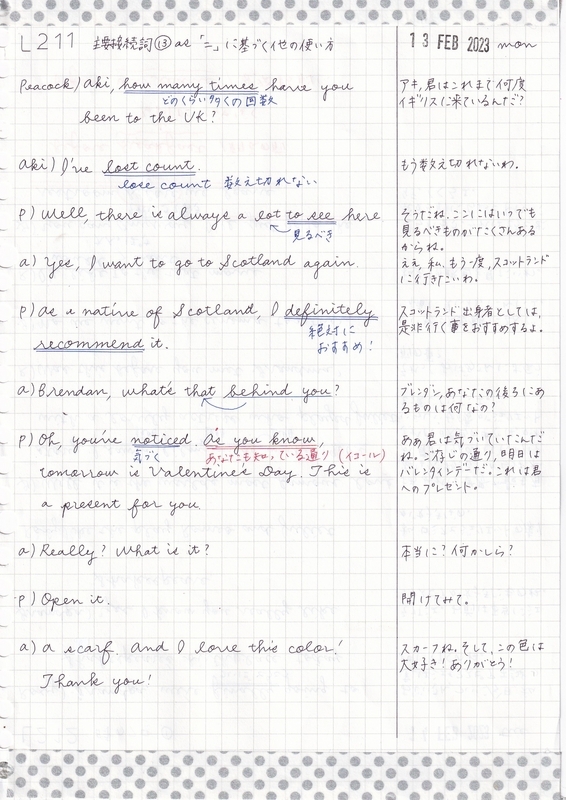 L211 主要接続詞⑬ as 「=」に基づく他の使い方
13 FEB 2023 mon
Peacock) Aki, how many times have you
どのくらい多くの回数
been to the UK?
アキ,君はこれまで何度
イギリスに来ているんだ?
Aki) I've lost count.
lose count 数え切れない
もう数え切れないわ。
P) Well, there is always a lot to see here
見るべき
そうだね。ここにはいつでも
見るべきものがたくさんある
からね。
a) Yes, I want to go to Scotland again.
ええ,私,もう一度,スコットランド
に行きたいわ。
P) As a native of Scotland, I definitely
絶対に
recommend it.
おすすめ!
スコットランド出身者としては,
是非行く事をおすすめするよ。
a) Brendan, what's that behind you?
ブレンダン,あなたの後ろにあ
るものは何なの?
P) Oh, you've noticed. As you know,
気づく あなたも知っている通り (イコール)
tomorrow is Valentine's Day. This is
a present for you.
ああ君は気づいていたんだ
ね。ご存じの通り,明日は
バレンタインデーだ。これは君
へのプレゼント。
a) Really? What is it?
本当に?何かしら?
P) Open it.
開けてみて。
a) A scarf. And I love this color!
Thank you!
スカーフね。そして,この色は
大好き!ありがとう!